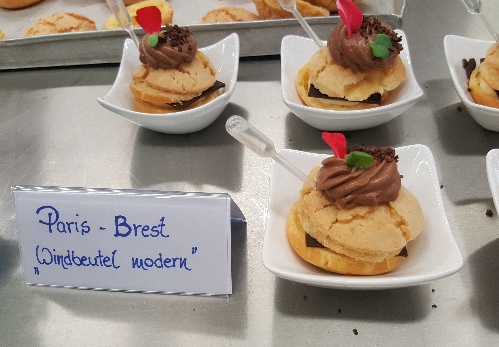 Paris - Brest
„Windbeutel modern"